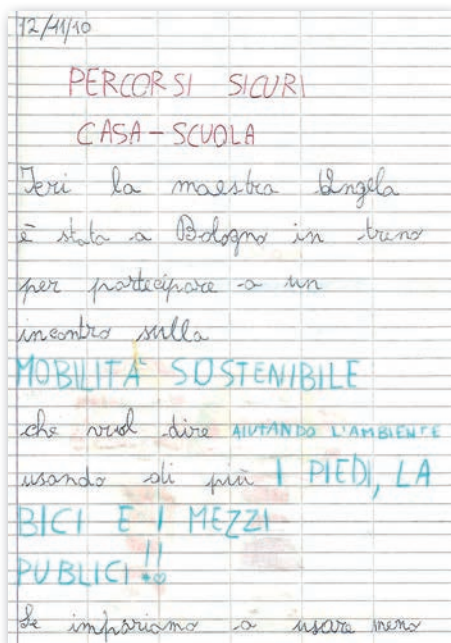 12/11/10
PERCORSI SICURI
CASA-SCUOLA
Ieri la maestra Angela
è stata a Bologna in treno
per partecipare a un
incontro sulla
MOBILITÀ SOSTENIBILE
che vuol dire AIUTANDO L'AMBIENTE
usando di più I PIEDI, LA
BICI E I MEZZI
PUBLICI!!
Se impariamo a usare meno